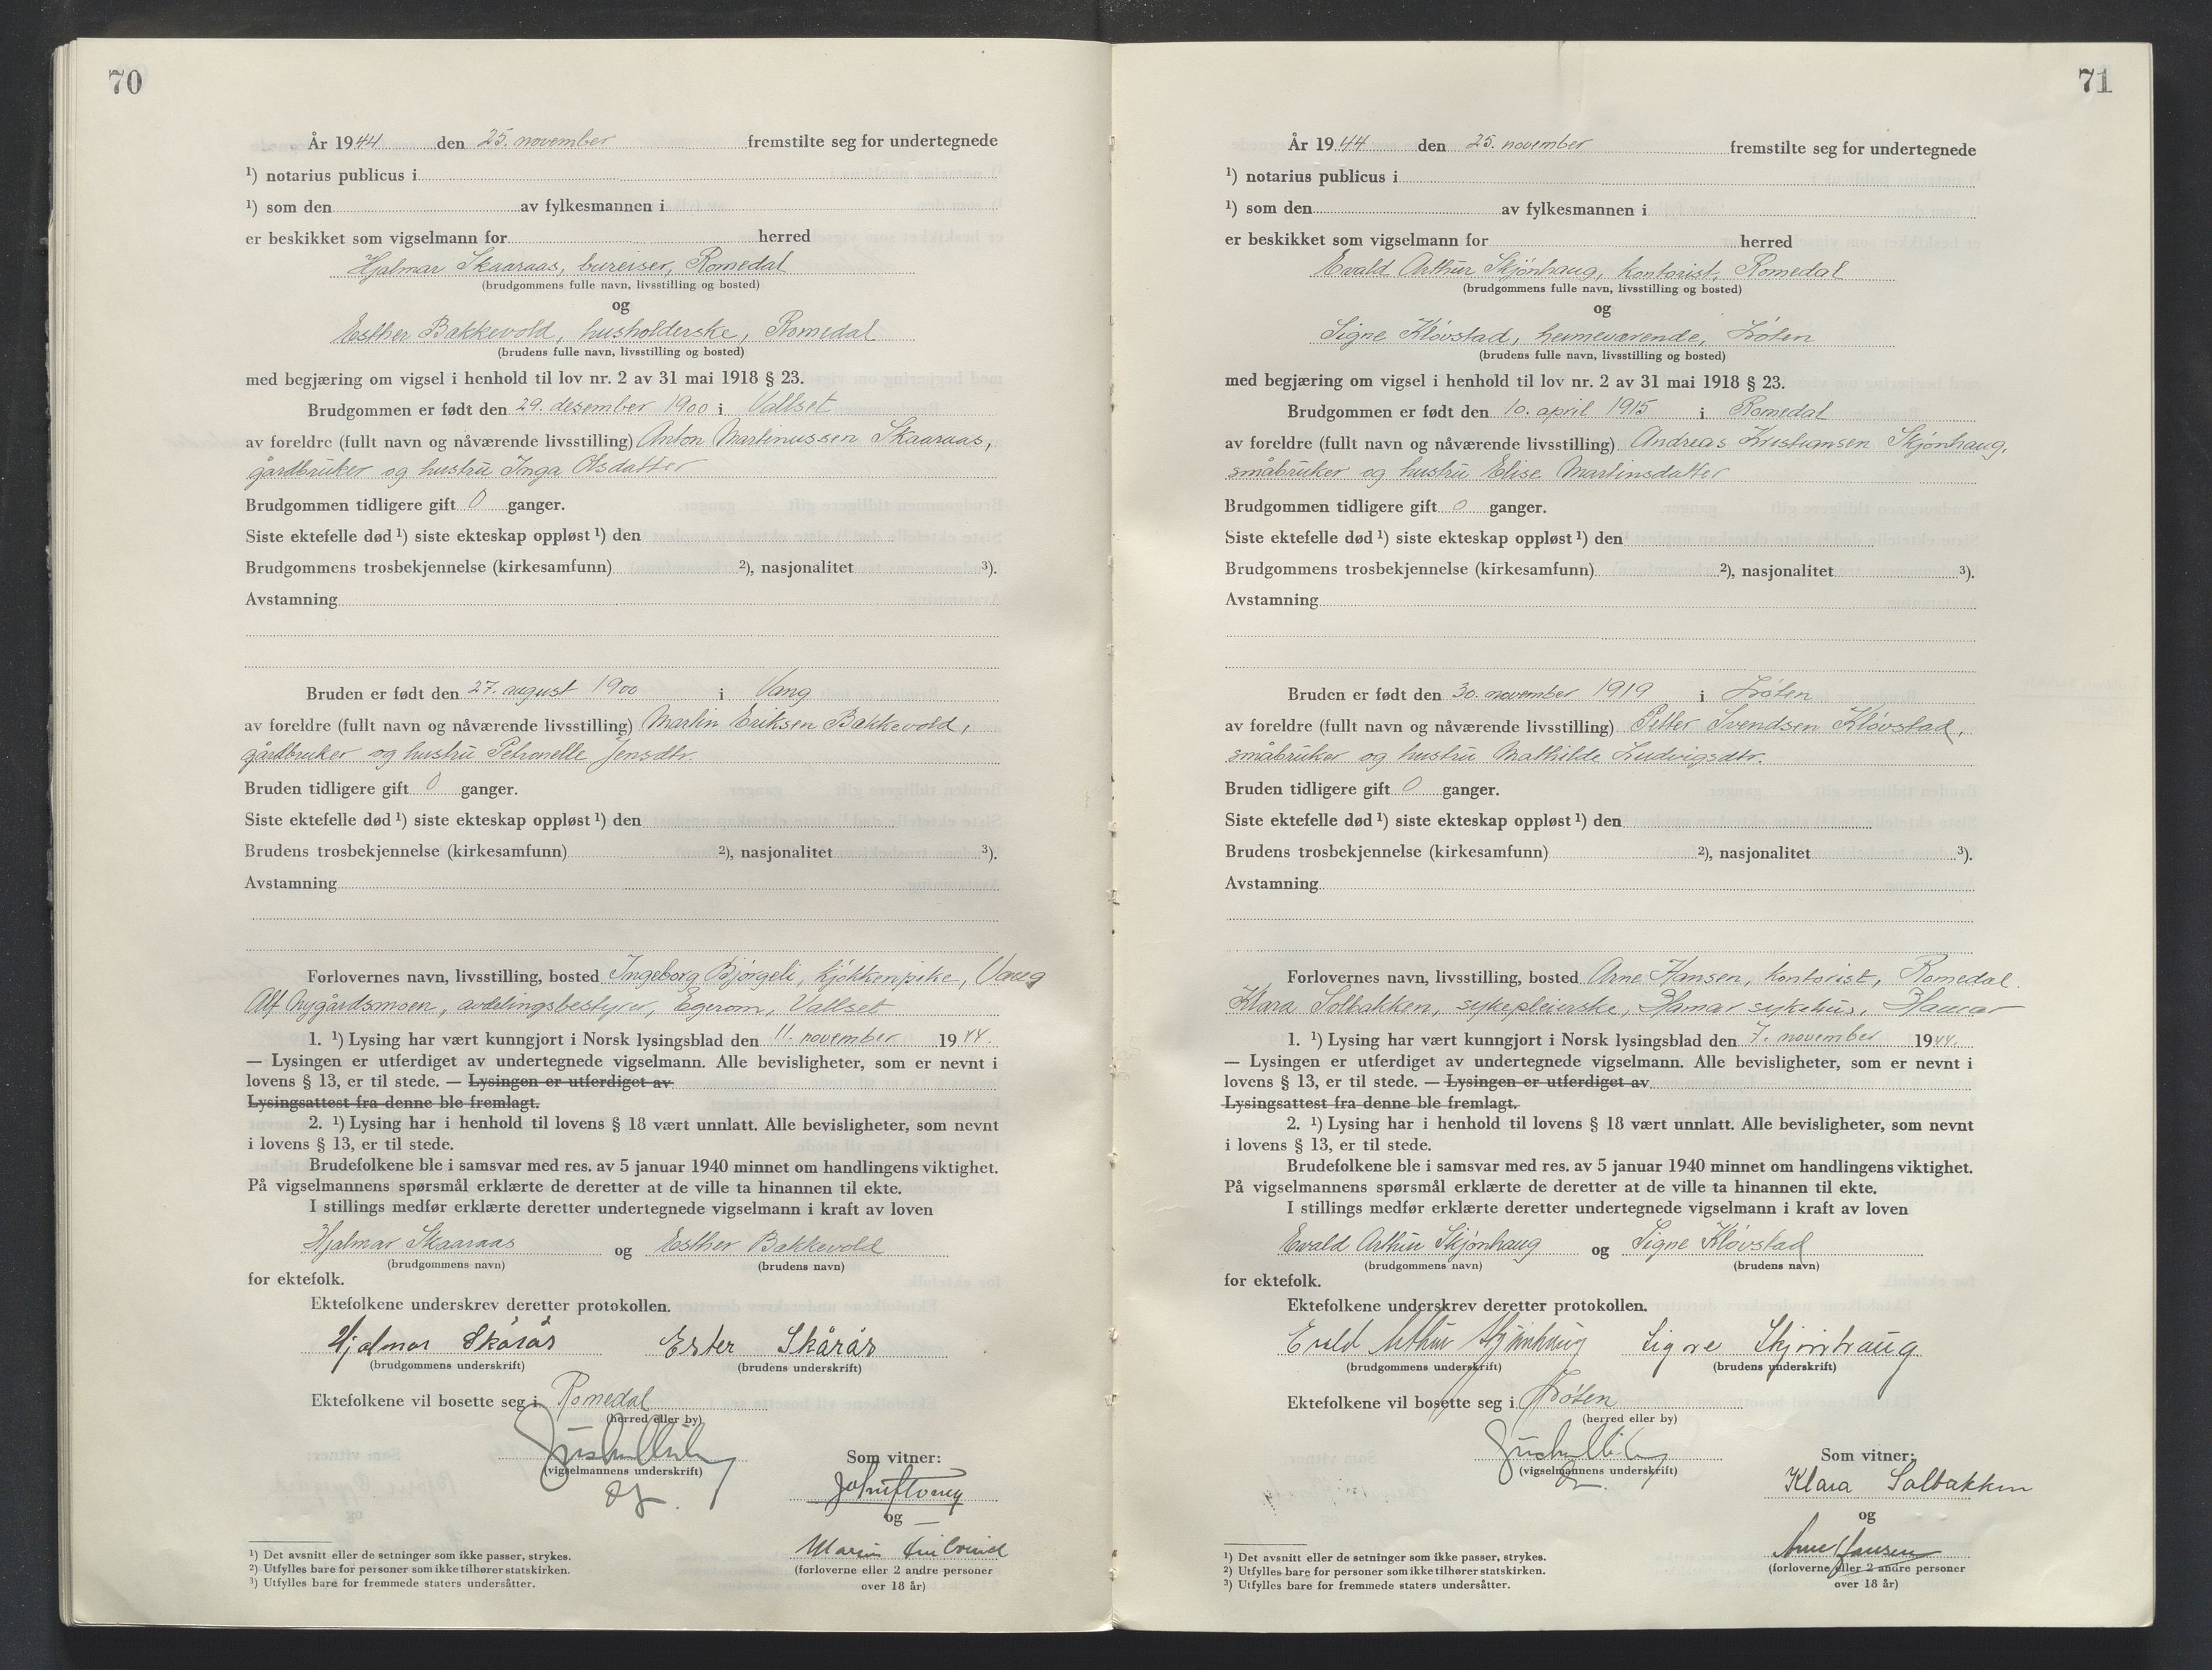 70
År 1944 den 25. november fremstilte seg for undertegnede
¹) notarius publicus i
¹) som den av fylkesmannen i
er beskikket som vigselmann for herred
Hjalmar Skaaraas, bureiser, Romedal
(brudgommens fulle navn, livsstilling og bosted)
og
Esther Bakkevold, husholderske, Romedal
(brudens fulle navn, livsstilling og bosted)
med begjæring om vigsel i henhold til lov nr. 2 av 31 mai 1918 § 23.
Brudgommen er født den 29. desember 1900 i Vallset
av foreldre (fullt navn og nåværende livsstilling) Anton Martinussen Skaaraas,
gårdbruker og hustru Inga Olsdatter
Brudgommen tidligere gift 0 ganger.
Siste ektefelle død ¹) siste ekteskap oppløst ¹) den
Brudgommens trosbekjennelse (kirkesamfunn) ²), nasjonalitet ³).
Avstamning
Bruden er født den 27. august 1900 i Vang
av foreldre (fullt navn og nåværende livsstilling) Martin Eriksen Bakkevold,
gårdbruker og hustru Petronelle Jensdtr.
Bruden tidligere gift 0 ganger.
Siste ektefelle død ¹) siste ekteskap oppløst ¹) den
Brudens trosbekjennelse (kirkesamfunn) ²), nasjonalitet ³).
Avstamning
Forlovernes navn, livsstilling, bosted Ingeborg Bjørgeli, kjøkkenpike, Vang
Alf Nygårdsmoen, avdelingsbestyrer, Egerom, Vallset
1. ¹) Lysing har vært kunngjort i Norsk lysingsblad den 11. november 1944.
— Lysingen er utferdiget av undertegnede vigselmann. Alle bevisligheter, som er nevnt i
lovens § 13, er til stede. — Lysingen er utferdiget av
Lysingsattest fra denne ble fremlagt.
2. ¹) Lysing har i henhold til lovens § 18 vært unnlatt. Alle bevisligheter, som nevnt
i lovens § 13, er til stede.
Brudefolkene ble i samsvar med res. av 5 januar 1940 minnet om handlingens viktighet.
På vigselmannens spørsmål erklærte de deretter at de ville ta hinannen til ekte.
I stillings medfør erklærte deretter undertegnede vigselmann i kraft av loven
Hjalmar Skaaraas og Esther Bakkevold
(brudgommens navn) (brudens navn)
for ektefolk.
Ektefolkene underskrev deretter protokollen.
Hjalmar Skårås Ester Skårås
(brudgommens underskrift) (brudens underskrift)
Ektefolkene vil bosette seg i Romedal
(herred eller by)
Som vitner:
(vigselmannens underskrift)
og
(forloverne eller 2 andre personer
over 18 år)
¹) Det avsnitt eller de setninger som ikke passer, strykes.
²) Utfylles bare for personer som ikke tilhører statskirken.
³) Utfylles bare for fremmede staters undersåtter.
71
År 1944 den 25. november fremstilte seg for undertegnede
¹) notarius publicus i
¹) som den av fylkesmannen i
er beskikket som vigselmann for herred
Evald Arthur Skjønhaug, kontorist, Romedal
(brudgommens fulle navn, livsstilling og bosted)
og
Signe Kløvstad, heimeværende, Løten
(brudens fulle navn, livsstilling og bosted)
med begjæring om vigsel i henhold til lov nr. 2 av 31 mai 1918 § 23.
Brudgommen er født den 10. april 1915 i Romedal
av foreldre (fullt navn og nåværende livsstilling) Andreas Kristiansen Skjønhaug,
småbruker og hustru Elise Martinsdatter
Brudgommen tidligere gift 0 ganger.
Siste ektefelle død ¹) siste ekteskap oppløst ¹) den
Brudgommens trosbekjennelse (kirkesamfunn) ²), nasjonalitet ³).
Avstamning
Bruden er født den 30. november 1919 i Løten
av foreldre (fullt navn og nåværende livsstilling) Petter Svendsen Kløvstad,
småbruker og hustru Mathilde Ludvigsdtr.
Bruden tidligere gift 0 ganger.
Siste ektefelle død ¹) siste ekteskap oppløst ¹) den
Brudens trosbekjennelse (kirkesamfunn) ²), nasjonalitet ³).
Avstamning
Forlovernes navn, livsstilling, bosted Arne Hansen, kontorist, Romedal.
Klara Solbakken, sykepleierske, Hamar sykehus, Hamar
1. ¹) Lysing har vært kunngjort i Norsk lysingsblad den 7. november 1944.
— Lysingen er utferdiget av undertegnede vigselmann. Alle bevisligheter, som er nevnt i
lovens § 13, er til stede. — Lysingen er utferdiget av
Lysingsattest fra denne ble fremlagt.
2. ¹) Lysing har i henhold til lovens § 18 vært unnlatt. Alle bevisligheter, som nevnt
i lovens § 13, er til stede.
Brudefolkene ble i samsvar med res. av 5 januar 1940 minnet om handlingens viktighet.
På vigselmannens spørsmål erklærte de deretter at de ville ta hinannen til ekte.
I stillings medfør erklærte deretter undertegnede vigselmann i kraft av loven
Evald Arthur Skjønhaug og Signe Kløvstad
(brudgommens navn) (brudens navn)
for ektefolk.
Ektefolkene underskrev deretter protokollen.
Evald Arthur Skjønhaug Signe Skjønhaug
(brudgommens underskrift) (brudens underskrift)
Ektefolkene vil bosette seg i Løten
(herred eller by)
Som vitner:
(vigselmannens underskrift)
Klara Solbakken
og
Arne Hansen
(forloverne eller 2 andre personer
over 18 år)
¹) Det avsnitt eller de setninger som ikke passer, strykes.
²) Utfylles bare for personer som ikke tilhører statskirken.
³) Utfylles bare for fremmede staters undersåtter.